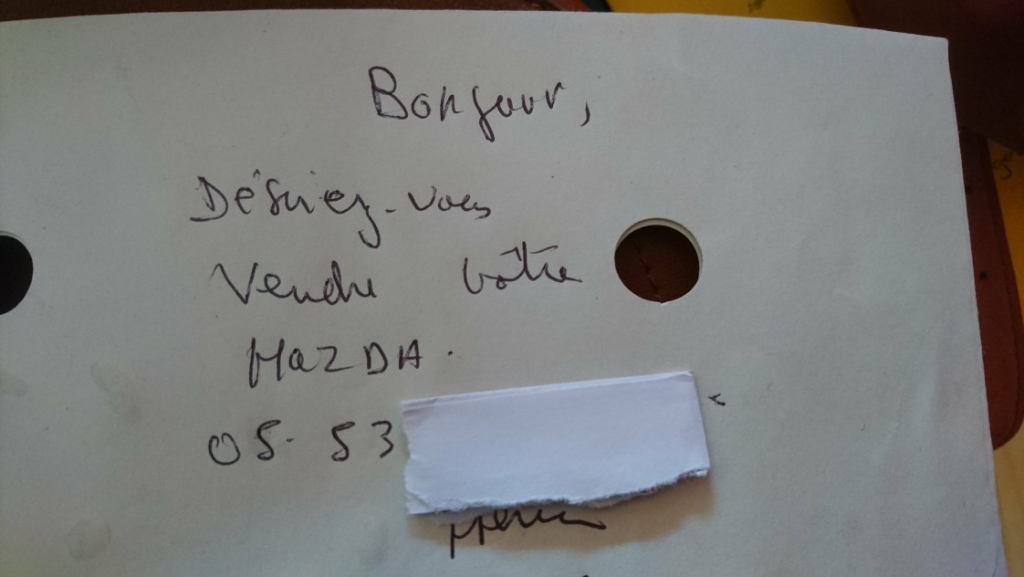 Bonjour,
Désiriez-vous
Vendre vôtre
MaZDA.
05. 53